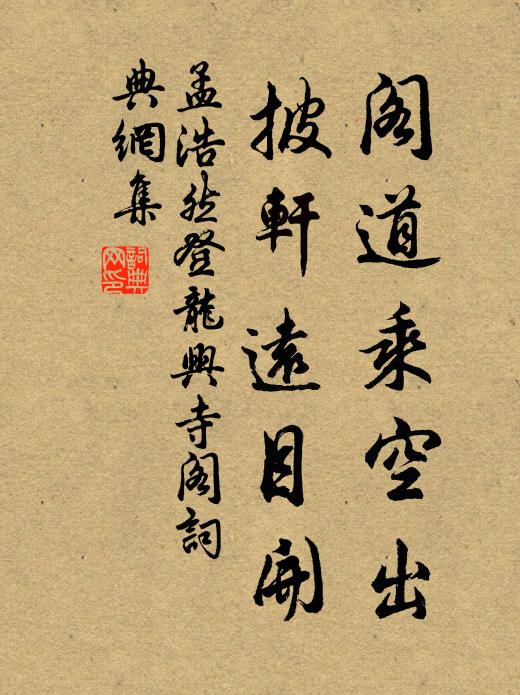 閣道乘空出
披軒遠目開
孟浩然登龍興寺閣詞
典網集
詞典网印